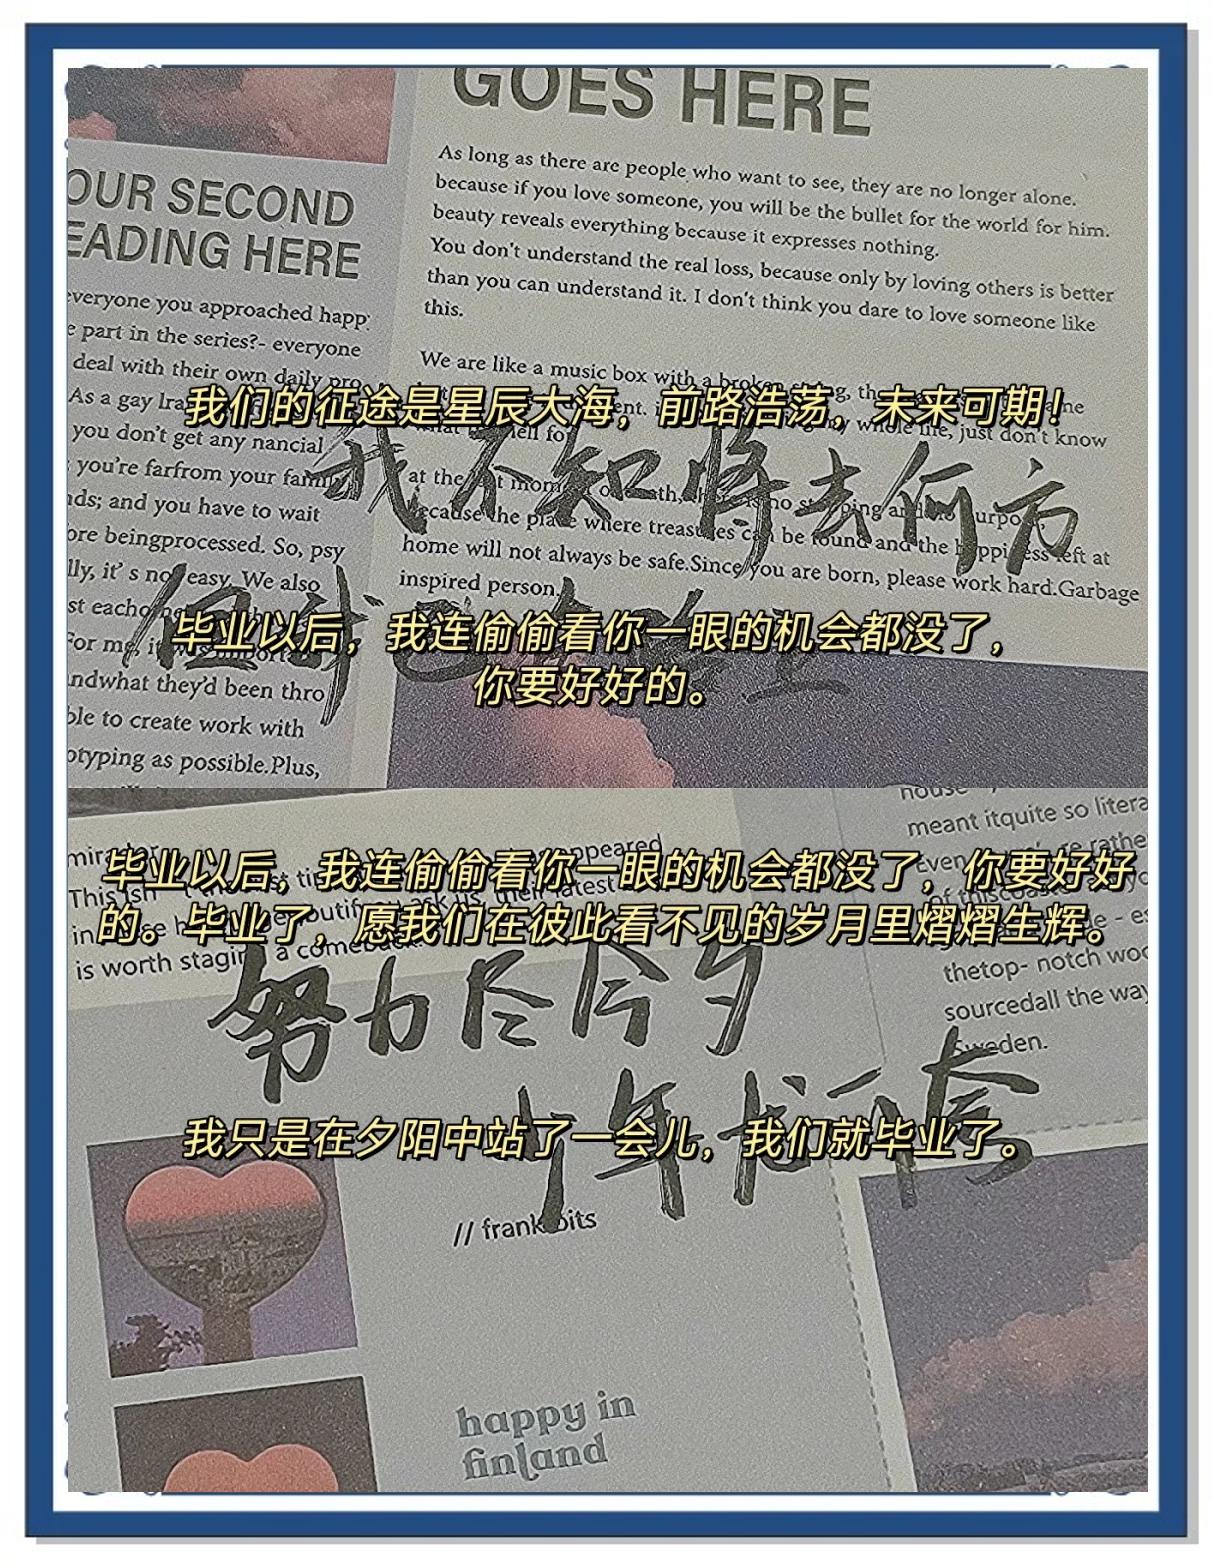 GOES HERE
As long as there are people who want to see, they are no longer alone.
because if you love someone, you will be the bullet for the world for him.
beauty reveals everything because it expresses nothing.
You don't understand the real loss, because only by loving others is better
than you can understand it. I don't think you dare to love someone like
this.
OUR SECOND
EADING HERE
everyone you approached happ
e part in the series?- everyone
deal with their own daily pro
As a gay
you don't get any nancial
you're farfrom your family
ds; and you have to wait
ore beingprocessed. So, psy
lly, it's not easy. We also
st each
For me, it
ndwhat they'd been thro
ble to create work with
otyping as possible.Plus,
We are like a music box with a broken
我们的征途是星辰大海，前路浩荡，未来可期！
whole life, just don't know
我不知将去何方
at the
because the place where treasures can be found and the happiness left at
home will not always be safe.Since you are born, please work hard.Garbage
inspired person.
但我已在路上
毕业以后，我连偷偷看你一眼的机会都没了，
你要好好的。
house
meant itquite so litera
毕业以后，我连偷偷看你一眼的机会都没了，你要好好
的。毕业了，愿我们在彼此看不见的岁月里熠熠生辉。
is worth staging a comeback
thetop- notch woo
sourcedall the way
Sweden.
努力尽今夕
少年尤可夸
我只是在夕阳中站了一会儿，我们就毕业了。
// frank bits
happy in
finland